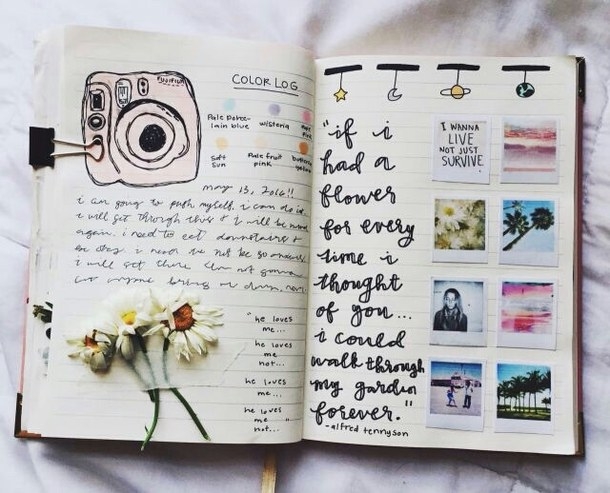 FUJIFILM
COLOR LOG
Pale Porce-
lain blue
wisteria
Soft
Sun
Pale fruit
pink
may 13, 2016!!
i am going to push myself. i can do it.
i will get through this & i will be
again. i need to eat downstairs &
i will get there
"he loves
me...
he loves
me
not...
he loves
me...
he loves
me
not..."
"if i
had a
flower
for every
time i
thought
of you...
i could
walk through
my garden
forever."
-alfred tennyson
I WANNA
LIVE
NOT JUST
SURVIVE.